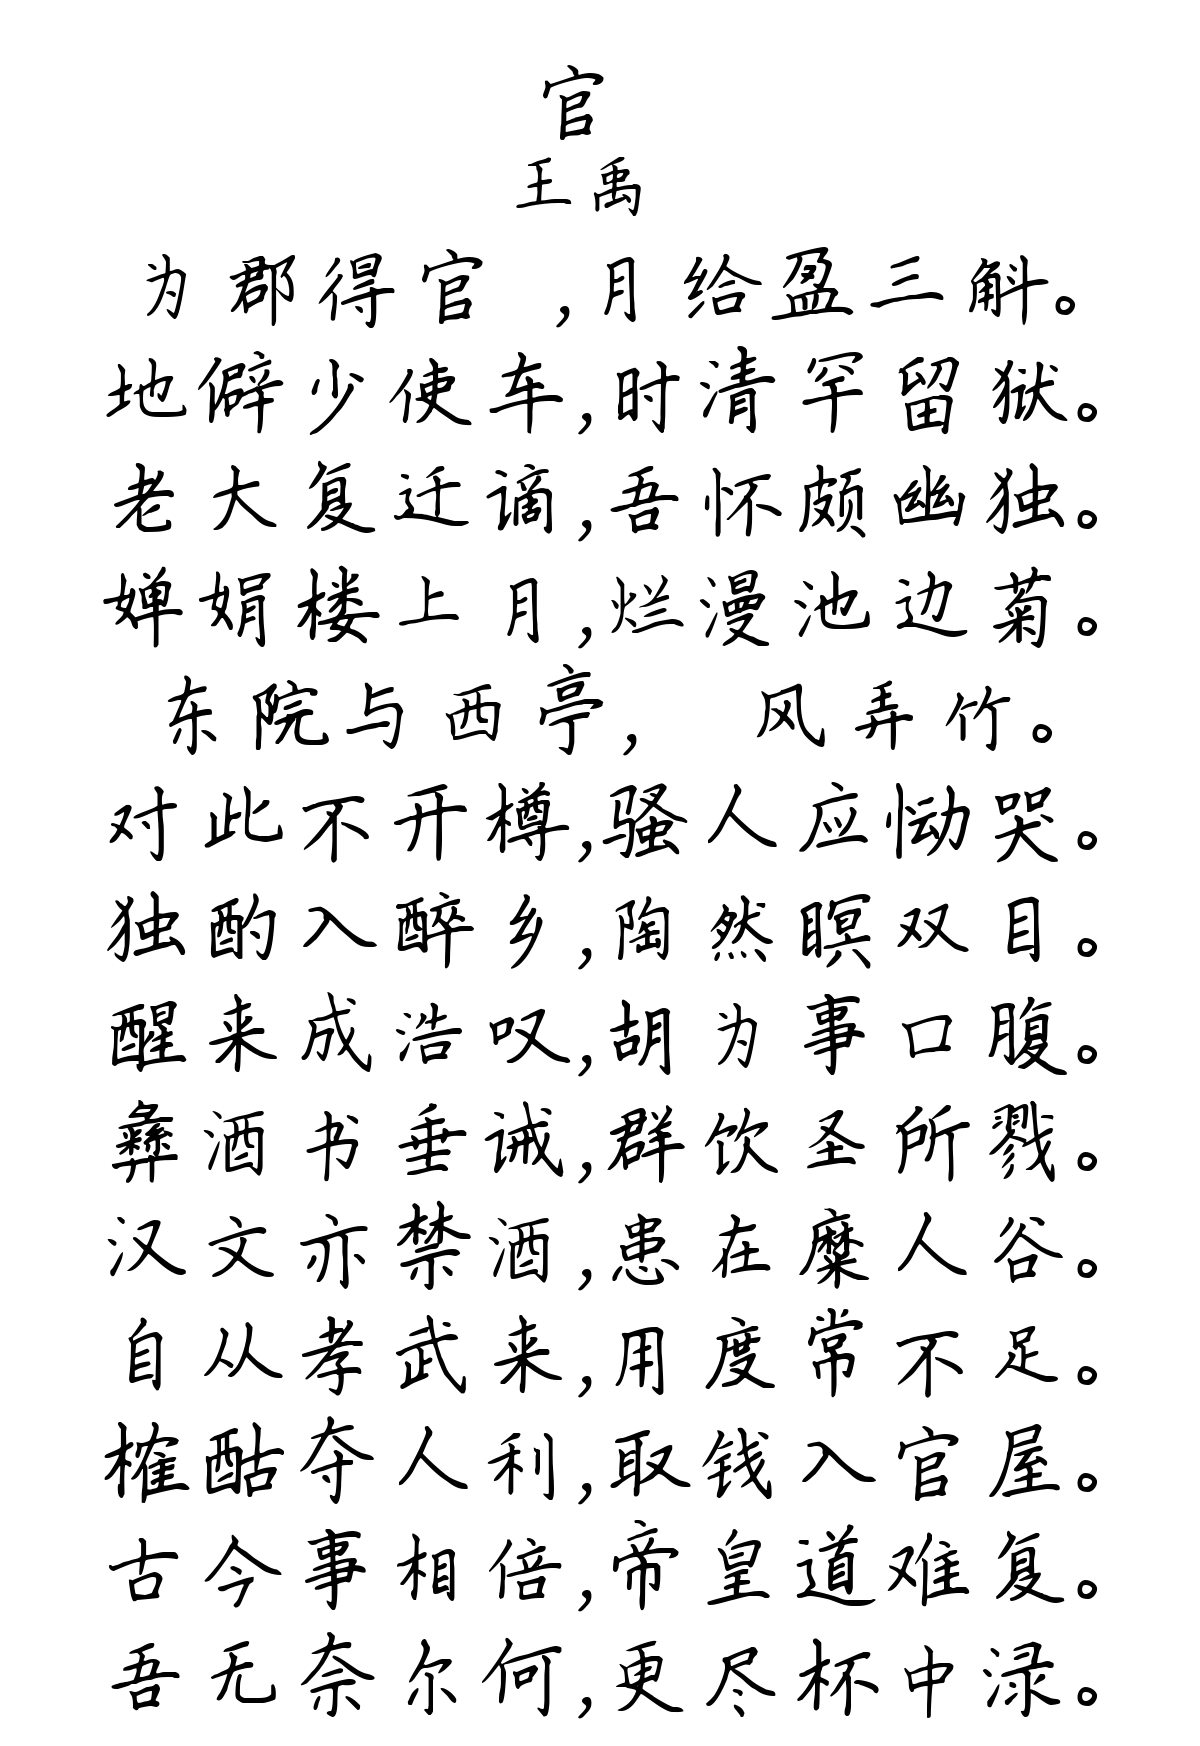 官
王禹
为郡得官 ,月给盈三斛。
地僻少使车,时清罕留狱。
老大复迁谪,吾怀颇幽独。
婵娟楼上月,烂漫池边菊。
东院与西亭, 风弄竹。
对此不开樽,骚人应恸哭。
独酌入醉乡,陶然瞑双目。
醒来成浩叹,胡为事口腹。
彝酒书垂诫,群饮圣所戮。
汉文亦禁酒,患在糜人谷。
自从孝武来,用度常不足。
榷酤夺人利,取钱入官屋。
古今事相倍,帝皇道难复。
吾无奈尔何,更尽杯中渌。